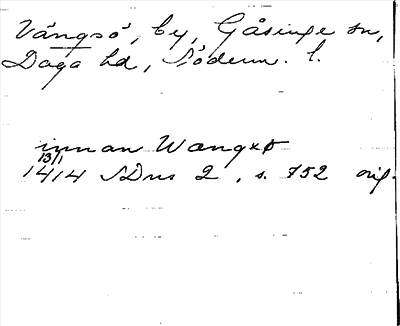 Vängsö, by, Gåsinge sn,
Daga hd, Söderm. l.
innan Wangxø
13/1
1414 SDns 2, s. 752 orig.